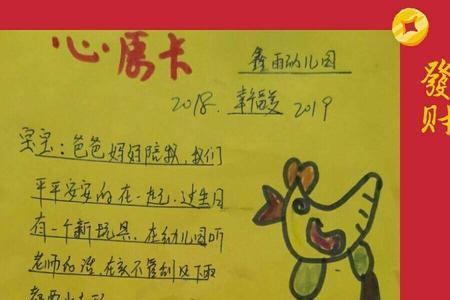 心愿卡
鑫雨幼儿园
2018. 2019
宝宝:爸爸妈妈陪我,我们
平平安安的在一起,过生日
有一个新玩具,在幼儿园听
老师的话,在家不管别及下取
發
财